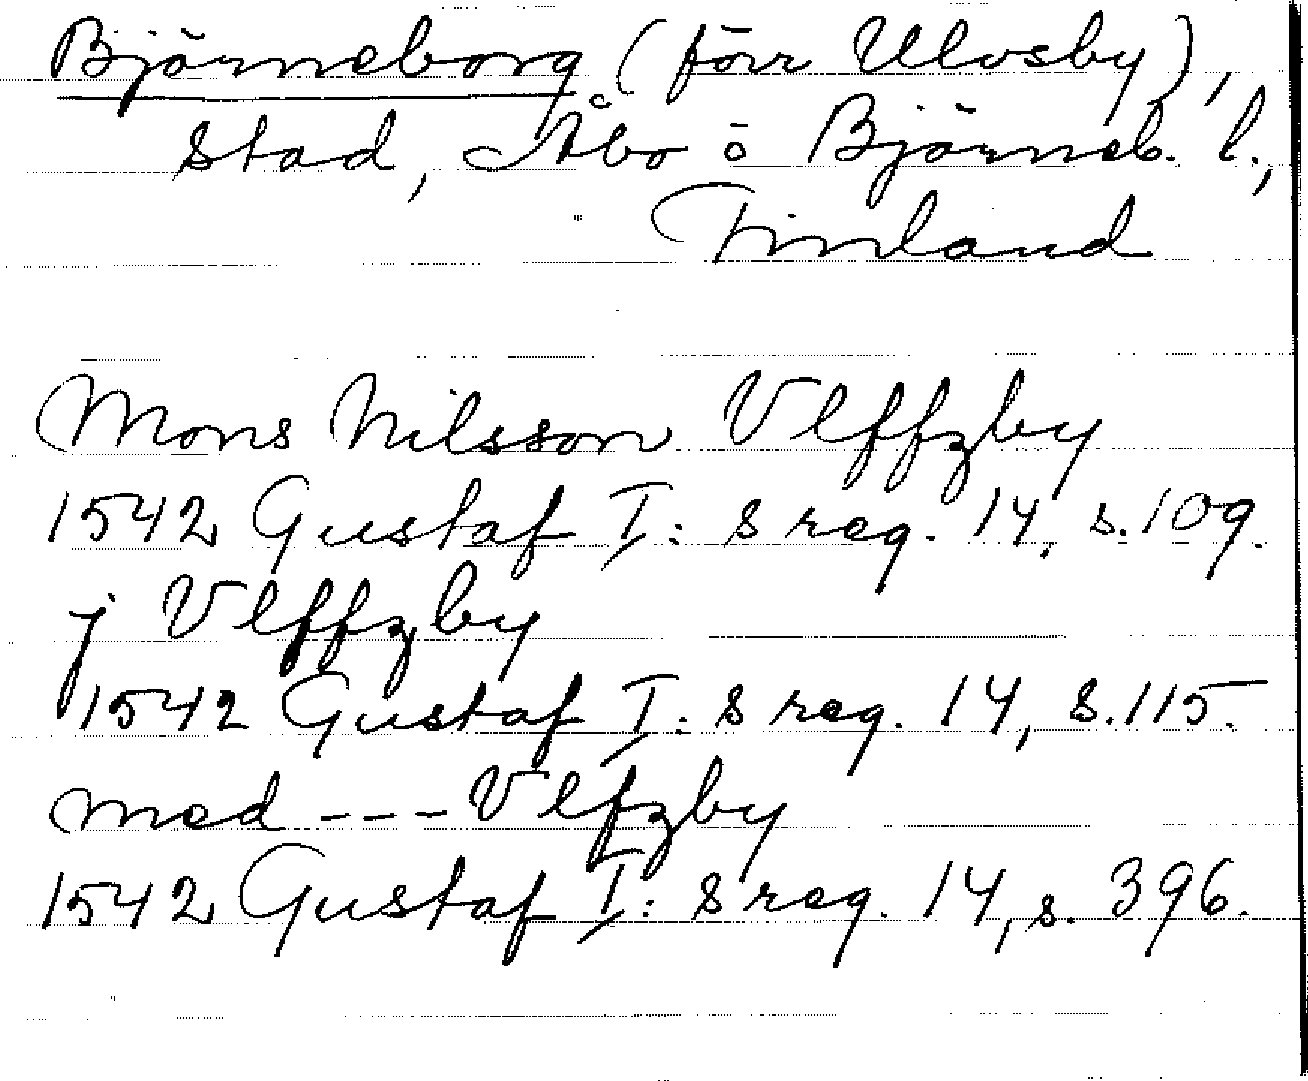 Björneborg (förr Ulvsby),
stad, Åbo o Björneb. l.,
Finland
Mons Nilsson Vlffzby
1542 Gustaf I: s reg. 14, s. 109.
j Vlffzby
1542 Gustaf I: s reg. 14, s. 115.
med --- Vlfzby
1542 Gustaf I: s reg. 14, s. 396.